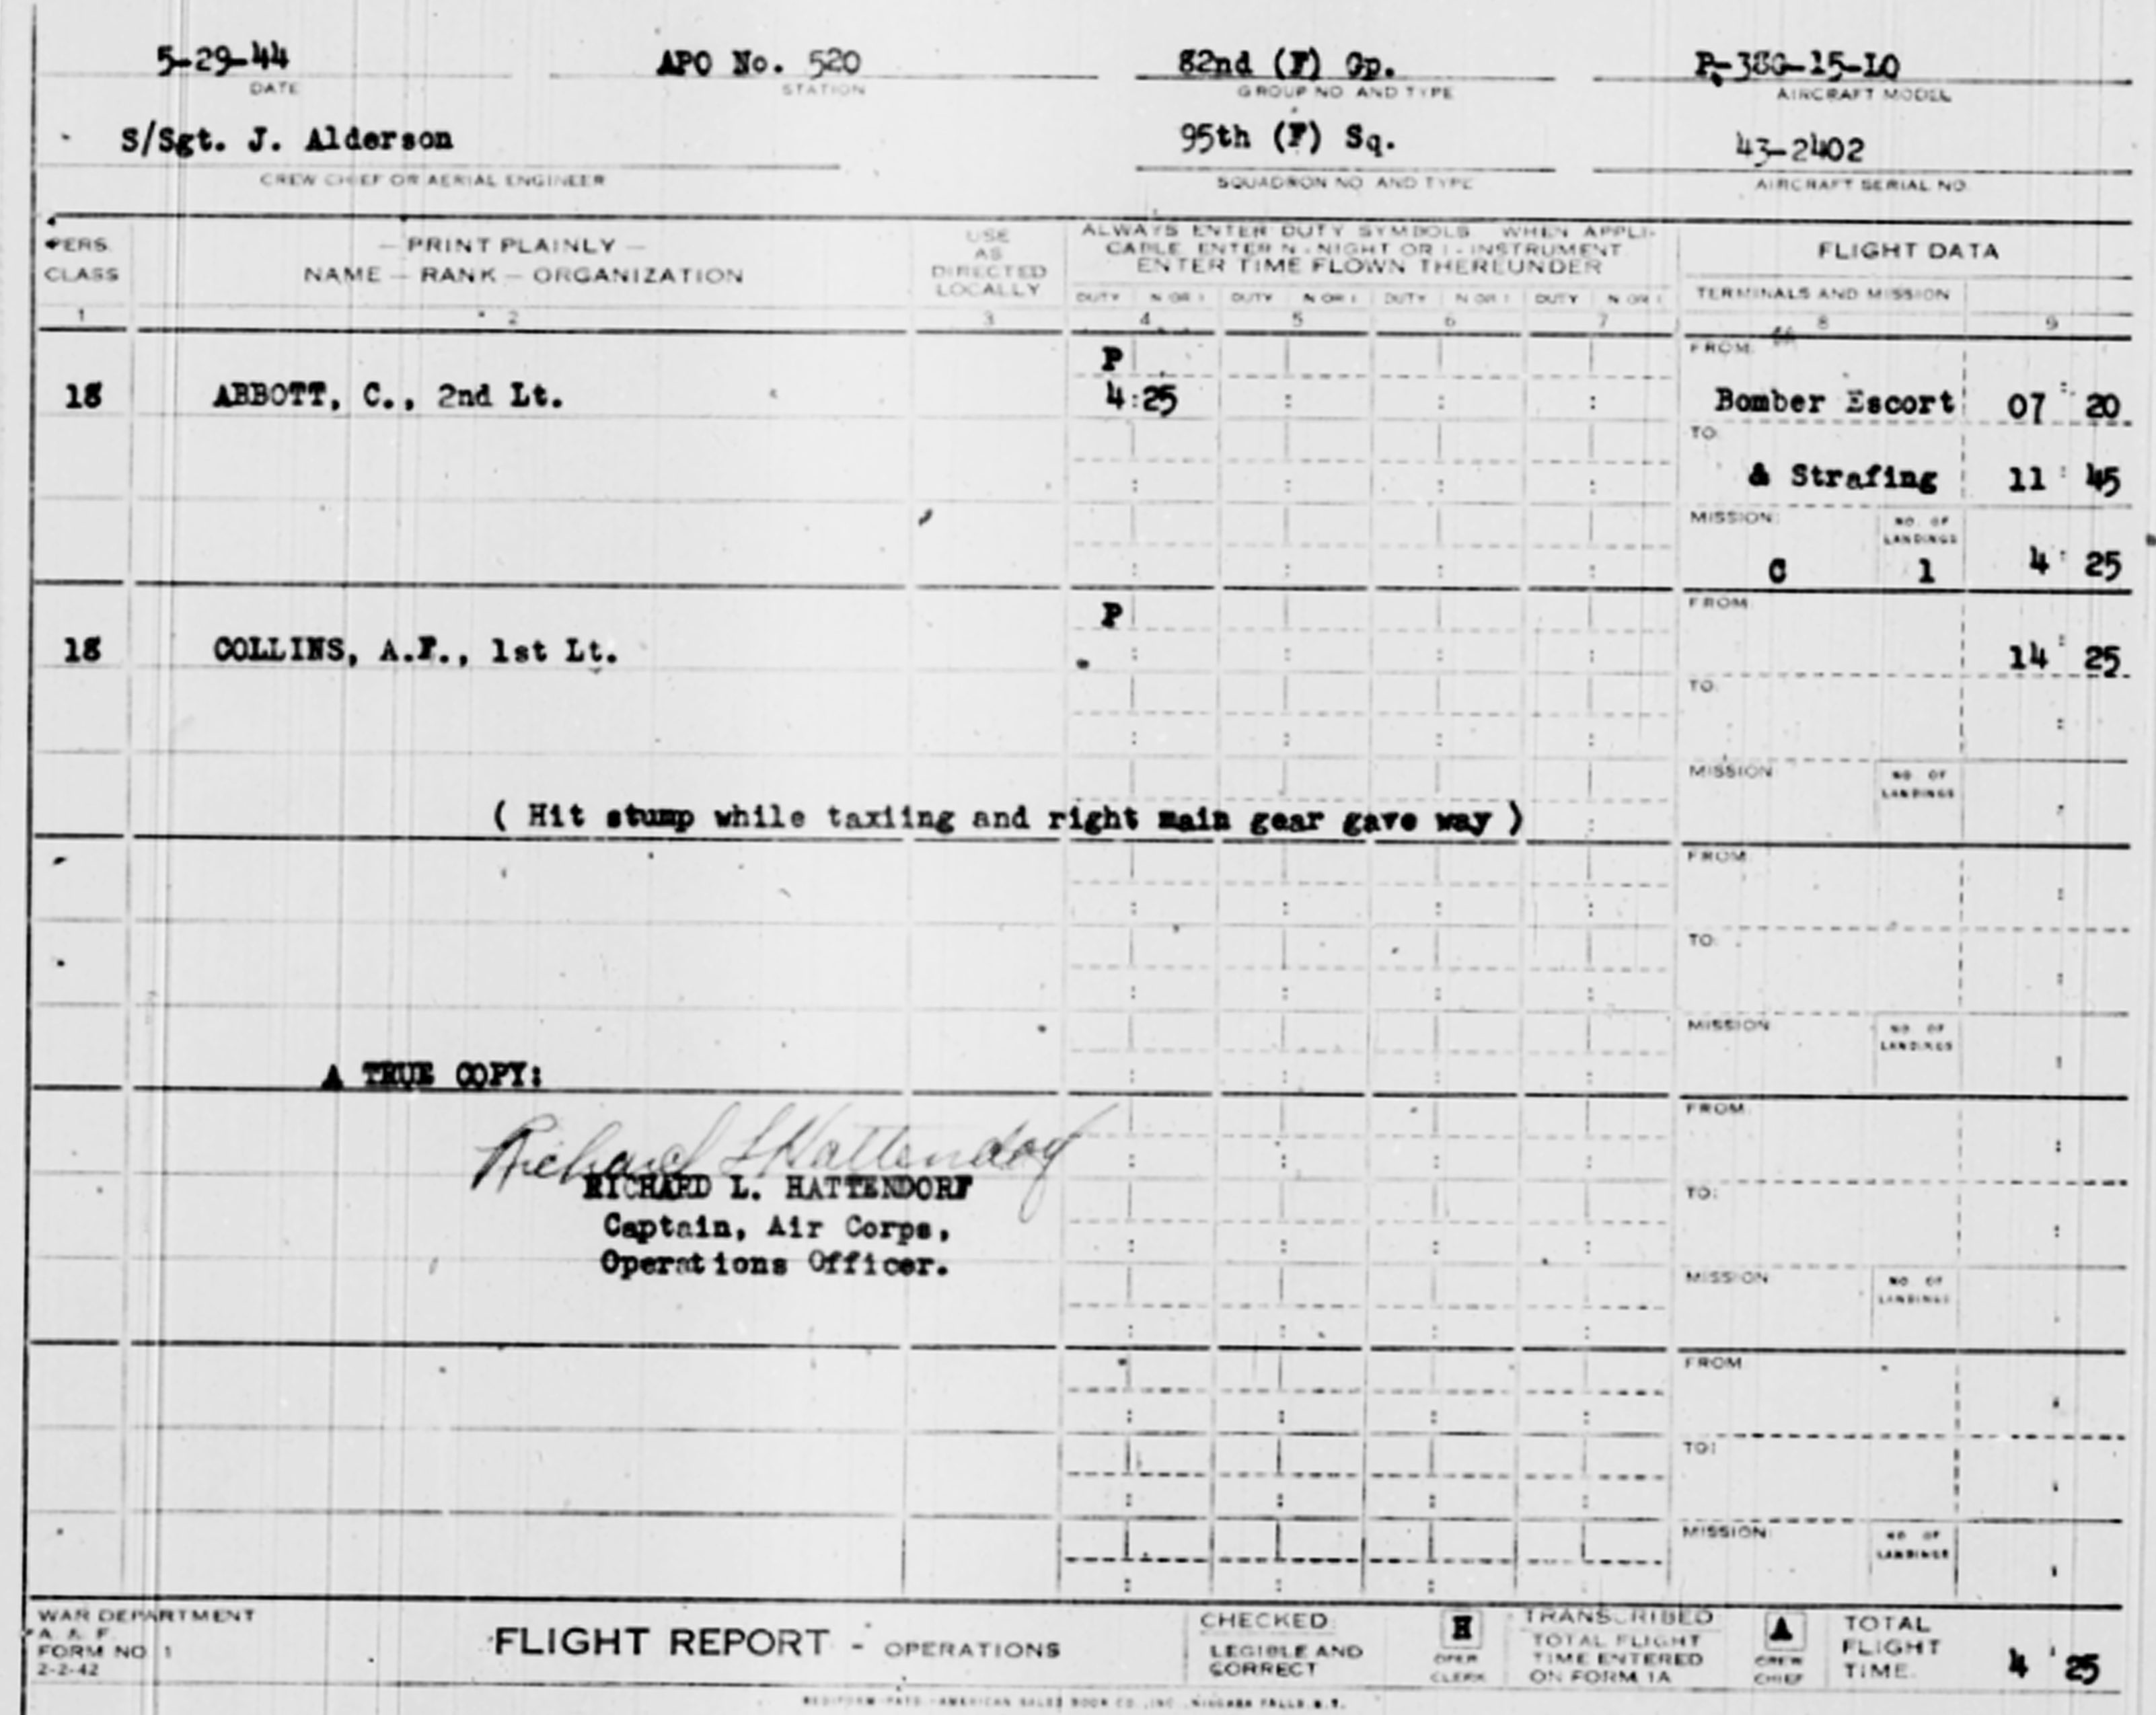 5-29-44 APO No. 520 82nd (F) Gp. P-38G-15-LO
DATE STATION GROUP NO AND TYPE AIRCRAFT MODEL
S/Sgt. J. Alderson 95th (F) Sq. 43-2402
CREW CHIEF OR AERIAL ENGINEER SQUADRON NO. AND TYPE AIRCRAFT SERIAL NO.
PERS. CLASS
— PRINT PLAINLY —
NAME — RANK — ORGANIZATION
USE
AS
DIRECTED
LOCALLY
ALWAYS ENTER DUTY SYMBOLS. WHEN APPLI-
CABLE ENTER N - NIGHT OR I - INSTRUMENT
ENTER TIME FLOWN THEREUNDER
DUTY N OR I DUTY N OR I DUTY N OR I DUTY N OR I
FLIGHT DATA
TERMINALS AND MISSION
1 2 3 4 5 6 7 8 9
P FROM:
18 ABBOTT, C., 2nd Lt. 4:25 Bomber Escort 07 : 20
TO:
& Strafing 11 : 45
MISSION: NO. OF LANDINGS
C 1 4 : 25
P FROM:
18 COLLINS, A.F., 1st Lt. 14 : 25
TO:
MISSION NO. OF LANDINGS
( Hit stump while taxiing and right main gear gave way )
FROM:
TO:
MISSION NO. OF LANDINGS
A TRUE COPY:
FROM:
Richard L Hattendorf
RICHARD L. HATTENDORF
TO:
Captain, Air Corps,
Operations Officer.
MISSION NO. OF LANDINGS
FROM
TO:
MISSION: NO. OF LANDINGS
WAR DEPARTMENT
A. A. F.
FORM NO. 1
2-2-42
FLIGHT REPORT - OPERATIONS
CHECKED
LEGIBLE AND
CORRECT
H
OPER.
CLERK
TRANSCRIBED
TOTAL FLIGHT
TIME ENTERED
ON FORM 1A
A
CREW
CHIEF
TOTAL
FLIGHT
TIME. 4 : 25
AMERICAN SALES BOOK CO., INC., NIAGARA FALLS, N.Y.